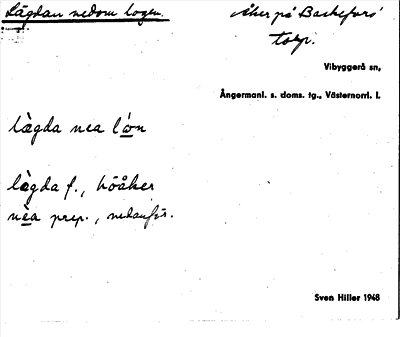 Lägdan nedom logen.
Åker på Backefors'
torp.
Vibyggerå sn,
Ångermanl. s. doms. tg., Västernorrl. l.
lägda nea lon
lägda f., höåker
nea prep., nedanför.
Sven Hiller 1948